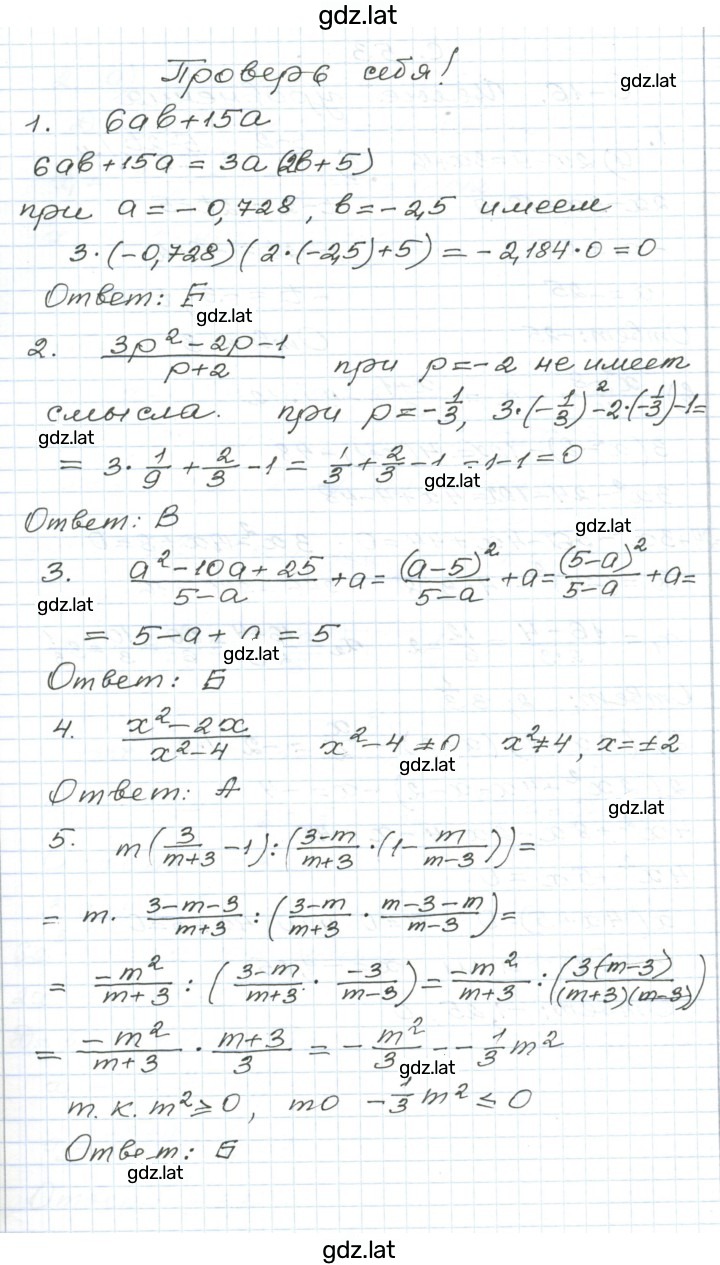 gdz.lat
Проверь себя!
gdz.lat
1. 6ab+15a
6ab+15a = 3a(2b+5)
при a=-0,728, b=-2,5 имеем
3·(-0,728)(2·(-2,5)+5)=-2,184·0=0
Ответ: Б
gdz.lat
2. (3p²-2p-1)/(p+2) при p=-2 не имеет
смысла. при p=-1/3, 3·(-1/3)²-2·(-1/3)-1=
gdz.lat
= 3·1/9+2/3-1= 1/3+2/3-1=1-1=0
gdz.lat
Ответ: В
gdz.lat
3. (a²-10a+25)/(5-a)+a=(a-5)²/(5-a)+a=(5-a)²/(5-a)+a=
gdz.lat
= 5-a+a=5
gdz.lat
Ответ: Б
4. (x²-2x)/(x²-4) x²-4≠0 x²≠4, x=±2
gdz.lat
Ответ: А
gdz.lat
5. m(3/(m+3)-1):((3-m)/(m+3)·(1-m/(m-3)))=
= m·(3-m-3)/(m+3):((3-m)/(m+3)·(m-3-m)/(m-3))=
= -m²/(m+3):((3-m)/(m+3)·-3/(m-3))=-m²/(m+3):(3(m-3)/((m+3)(m-3)))
= -m²/(m+3)·(m+3)/3=-m²/3=-1/3m²
gdz.lat
т.к. m²≥0, то -1/3m²≤0
Ответ: Б
gdz.lat
gdz.lat